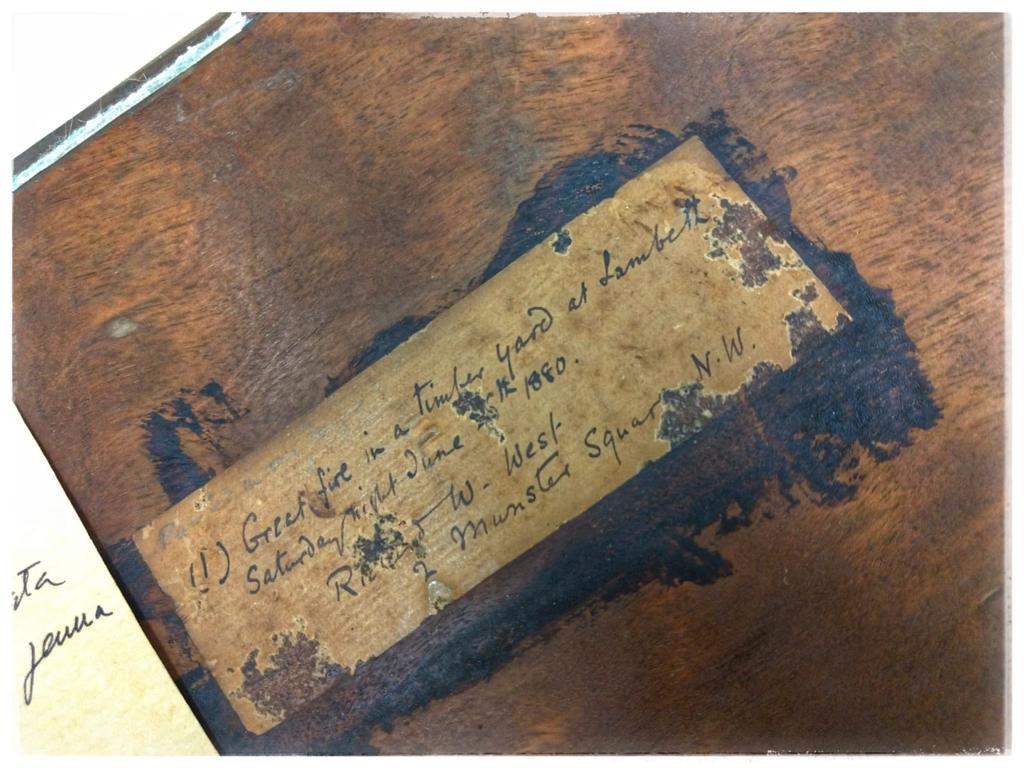 (1) Great fire in a timber yard at Lambeth
Saturday night June th 1880.
W. West
2 Munster Square N.W.
Jenna